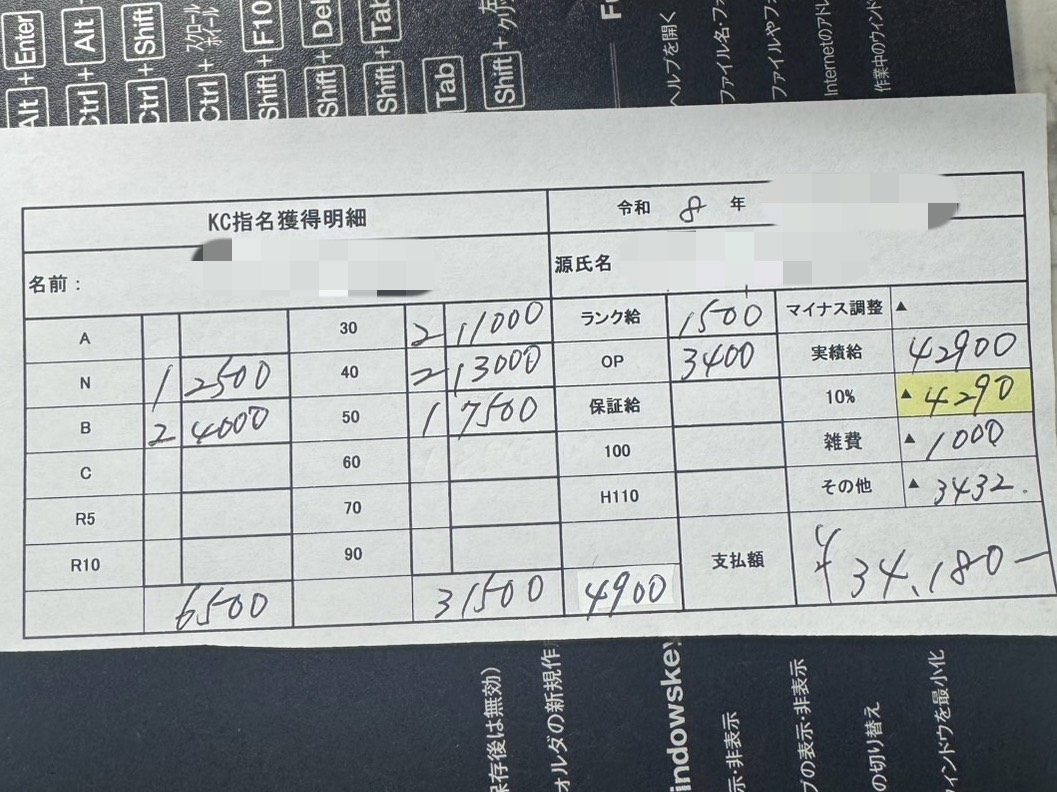 Alt + Enter
Ctrl + Alt
Ctrl + Shift
Ctrl + スクロールホイール
Shift + F10
Shift + Del
Shift + Tab
Tab
Shift +
ヘルプを開く
ファイル名・ファ
ファイルやファ
Internetのアドレ
作業中のウィンド
KC指名獲得明細 令和 8 年
名前： 源氏名
A 30 2 11000 ランク給 1500 マイナス調整 ▲
N 1 2500 40 2 13000 OP 3400 実績給 42900
B 2 4000 50 1 7500 保証給 10% ▲4290
C 60 100 雑費 ▲1000
R5 70 H110 その他 ▲3432.
R10 90 支払額 ¥34.180-
6500 31500 4900
保存後は無効)
ォルダの新規作
indowskey
示・非表示
プの表示・非表示
の切り替え
ィンドウを最小化